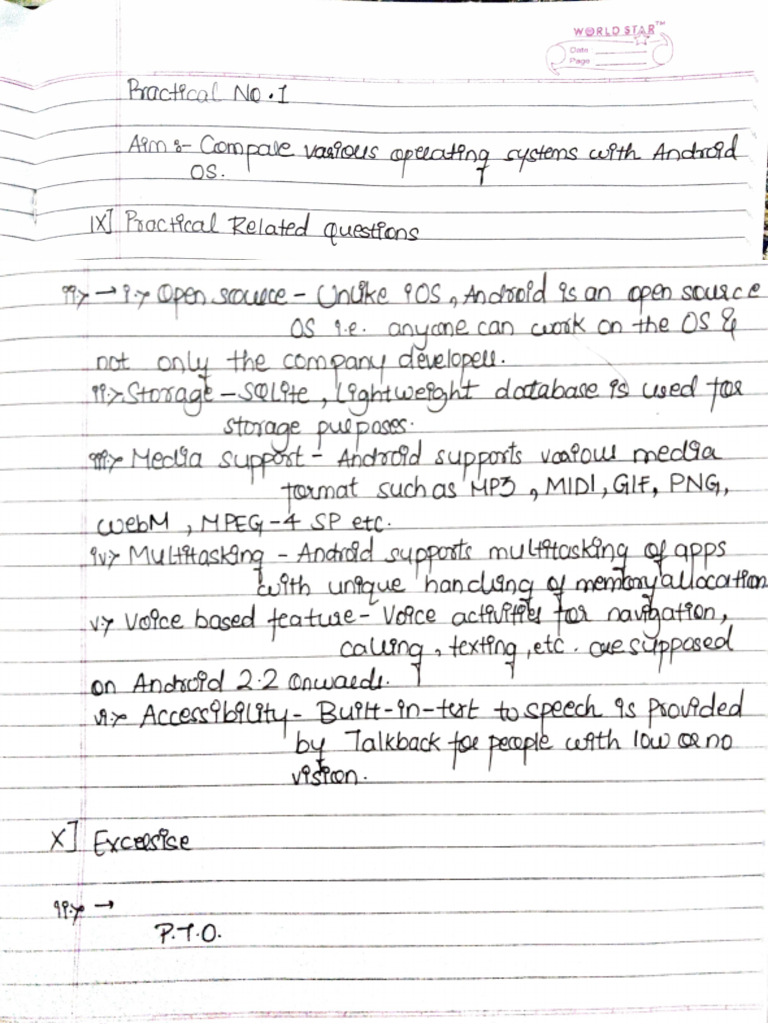 WORLD STAR™
Date
Page
Practical No.1
Aim :- Compare various operating systems with Android
OS.
IX] Practical Related questions
ii.> → i.> Open source - Unlike iOS, Android is an open source
OS i.e. anyone can work on the OS &
not only the company developers.
ii.> Storage - SQLite, Lightweight database is used for
storage purposes.
iii.> Media support - Android supports various media
format such as MP3, MIDI, GIF, PNG,
WebM, MPEG-4 SP etc.
iv.> Multitasking - Android supports multitasking of apps
with unique handling of memory allocation.
v.> Voice based feature - Voice activities for navigation,
calling, texting, etc. are supposed
on Android 2.2 onwards.
vi.> Accessibility - Built-in-text to speech is provided
by Talkback for people with low or no
vision.
X] Excersise
ii.> →
P.T.O.